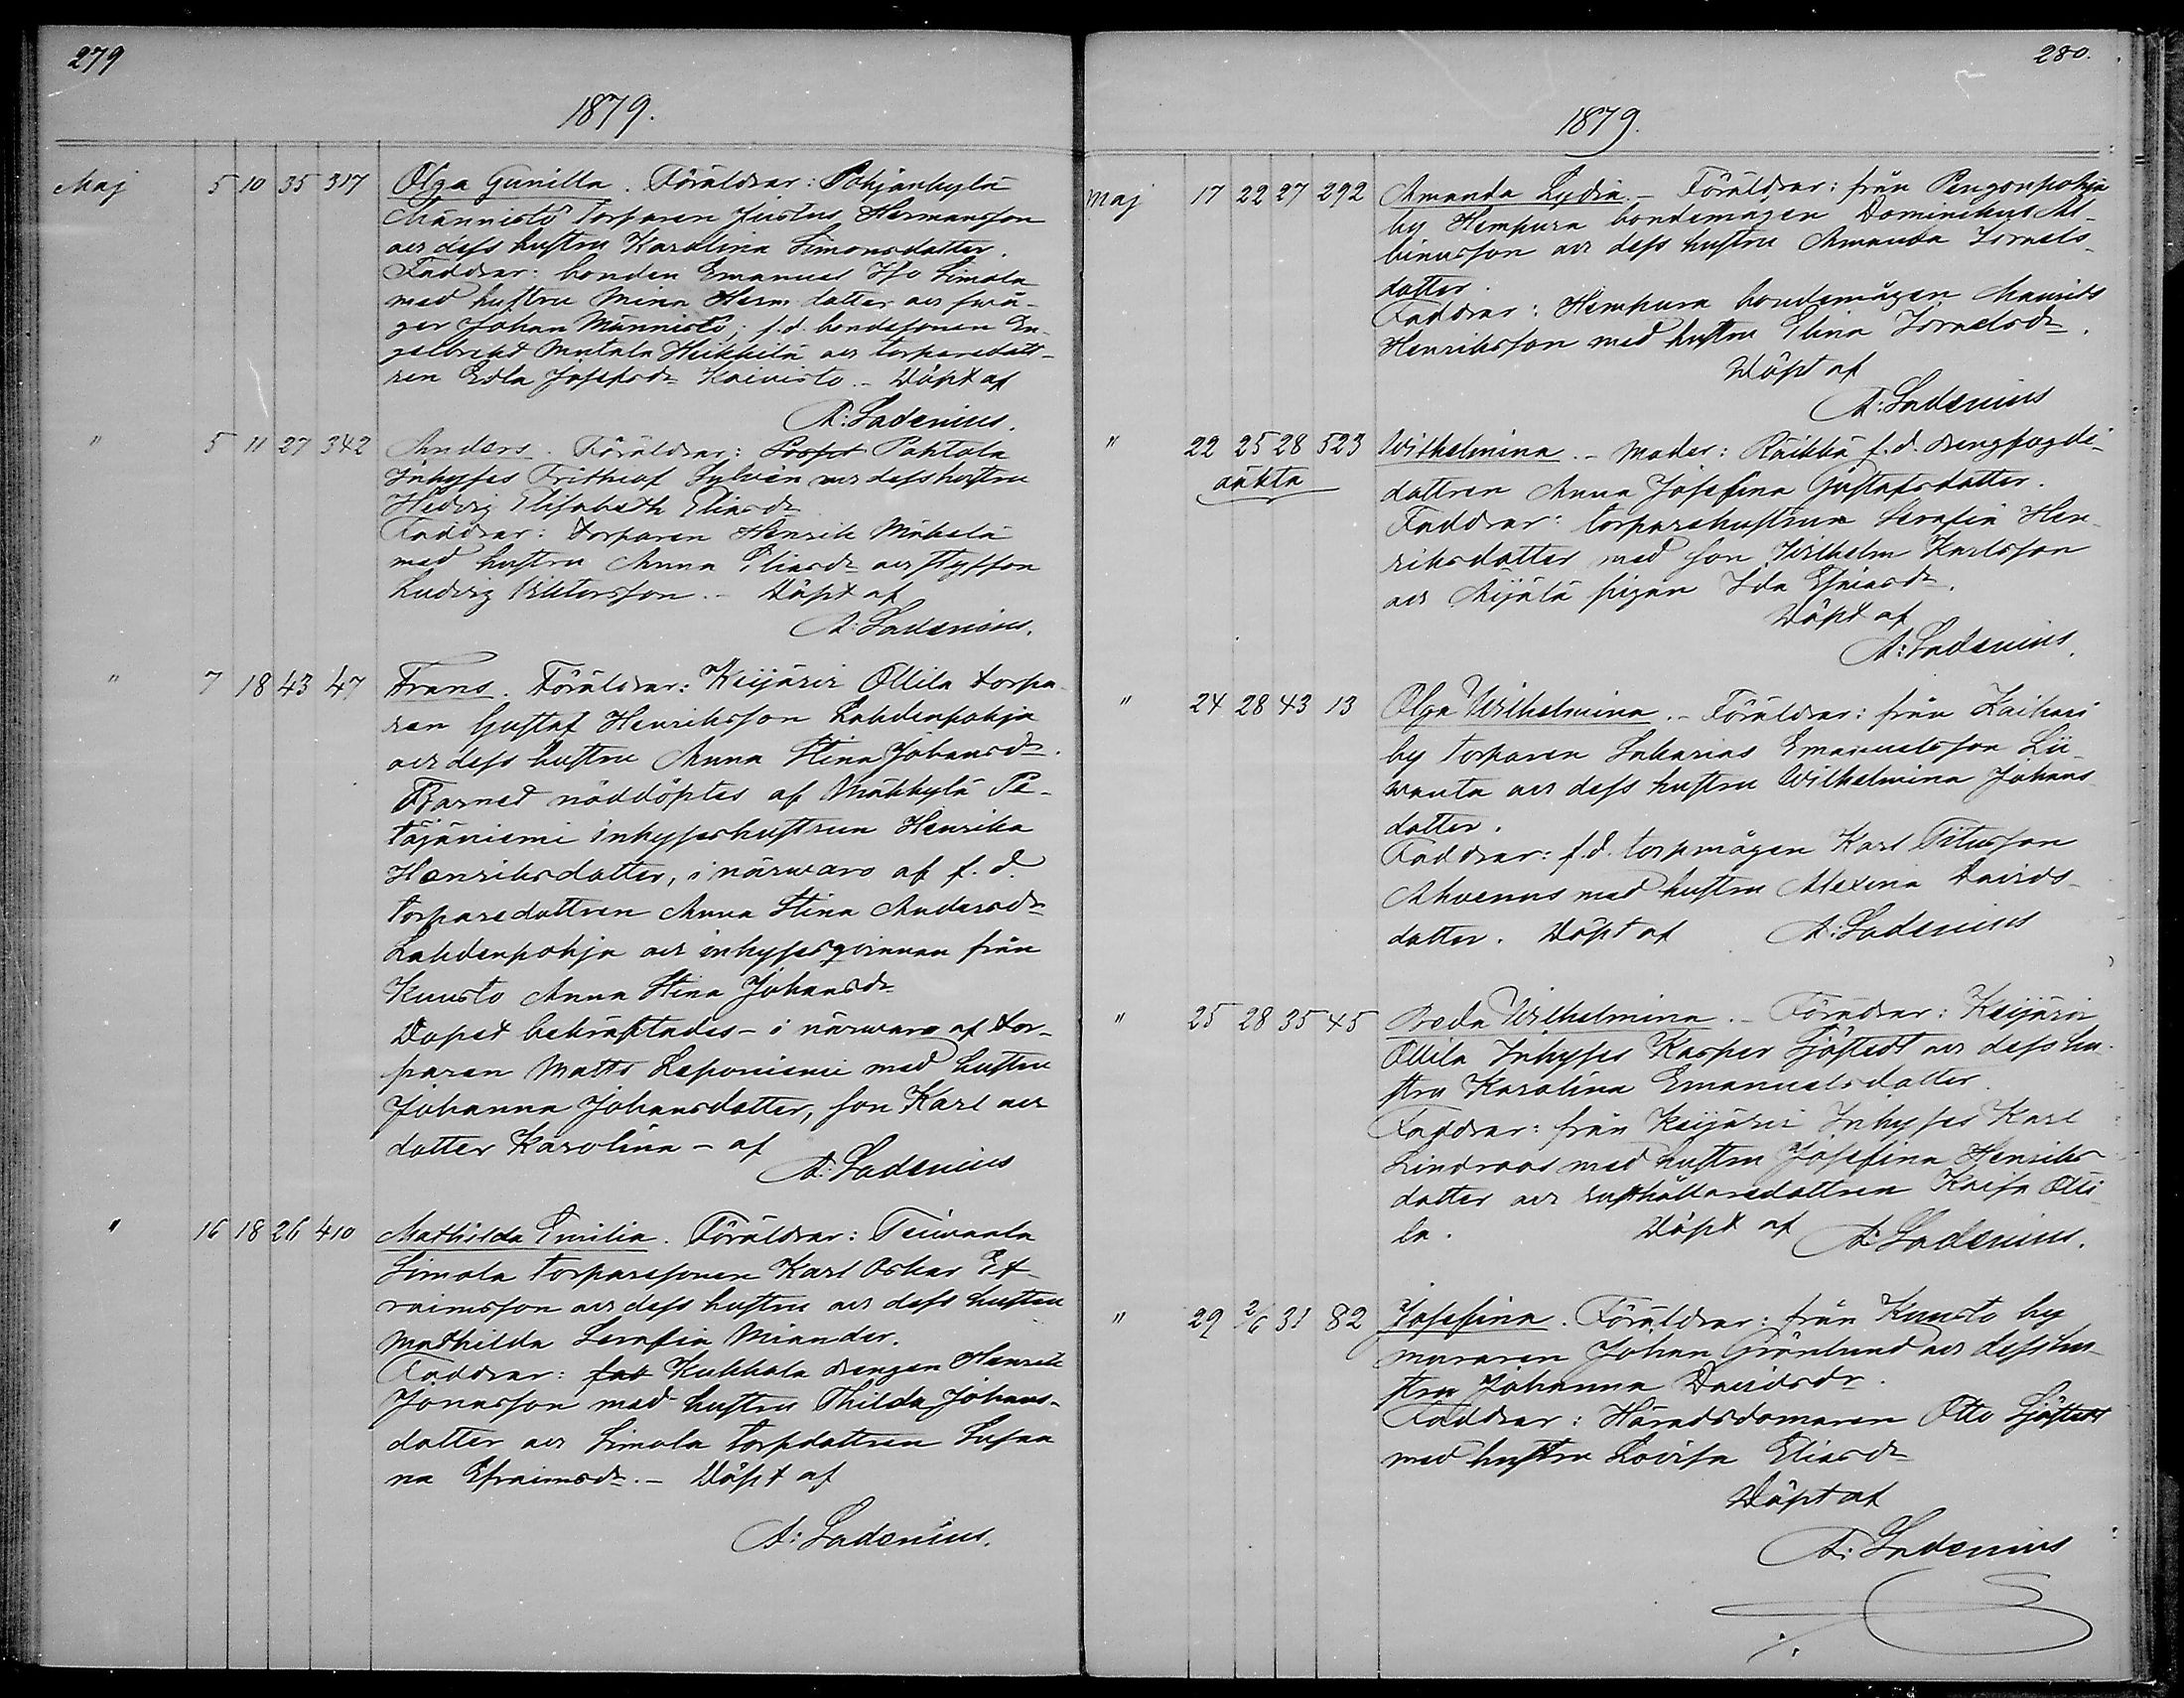 279
1879.
Maj 5 10 35 317 Olga Gunilla. Föräldrar: Pohjankylä
Männistö torparen Justus Hermansson
och dess hustru Karolina Simonsdotter.
Faddrar: bonden Emanuel Iso Simola
med hustru Mina Herm. dotter och swå-
ger Johan Männistö; f.d. bondesonen En-
gelbrekt Mutala Heikkilä och torparedott-
ren Edla Josefsdr Koivisto. - Döpt af
A: Ladenius.
" 5 11 27 342 Anders. Föräldrar: Pahtola
Inhyses Frithiof Sylvén och dess hustru
Hedvig Elisabeth Eliasdr
Faddrar: torparen Henrik Mäkelä
med hustru Anna Eliasdr och styfson
Ludvig Viktorsson. - Döpt af
A: Ladenius.
" 7 18 43 47 Frans. Föräldrar: Keijäris Ollila torpa-
ren Gustaf Henriksson Lahdenpohja
och dess hustru Anna Stina Johansdr.
Barnet nöddöptes af Mäkkylä Pe-
täjäniemi inhyseshustrun Henrika
Henriksdotter, i närwaro af f.d.
torparedottren Anna Stina Andersdr
Lahdenpohja och inhysesqvinnan från
Kuusto Anna Stina Johansdr
Dopet bekräftades - i närwaro af tor-
paren Matts Leponiemi med hustru
Johanna Johansdotter, son Karl och
dotter Karolina - af
A: Ladenius
" 16 18 26 410 Mathilda Emilia. Föräldrar: Teiwaala
Simola torparesonen Karl Oskar Ef-
raimsson och dess hustru och dess hustru
Mathilda Serafia Miander.
Faddrar: Kukkola drengen Henrik
Jonasson med hustru Thilda Johans-
dotter och Simola torpdottren Susan
na Efraimsdr. - Döpt af
A: Ladenius.
280.
1879.
Maj 17 22 27 292 Amanda Lydia. - Föräldrar: från Pengonpohja
by Hempura bondemågen Dominikus Al-
binusson och dess hustru Amanda Israels-
dotter.
Faddrar: Hempura bondemågen Maurits
Henriksson med hustru Elina Israelsdr.
Döpt af
A: Ladenius
" 22 25 28 523 Wilhelmina. - Moder: Räikkä f.d. drengfogde-
oäkta
dottren Anna Josefina Gustafsdotter.
Faddrar: torparehustrun Serafia Hen-
riksdotter med son Wilhelm Karlsson
och Äijälä pigan Ida Efraimsdr.
Döpt af
A: Ladenius.
" 24 28 43 13 Olga Wilhelmina. - Föräldrar: från Kaihari
by torparen Sakarias Emanuelsson Lii-
wanta och dess hustru Wilhelmina Johans-
dotter.
Faddrar: f.d. torpmågen Karl Titusson
Ahvenus med hustru Alexina Davids-
dotter. Döpt af A: Ladenius
" 25 28 35 45 Breda Wilhelmina. - Föräldrar: Keijäris
Ollila Inhyses Kasper Sjöstedt och dess hu-
stru Karolina Emanuelsdotter.
Faddrar: från Keijäris Inhyses Karl
Lindroos med hustru Josefina Henriks-
dotter och rusthållaredottren Kaisa Olli-
la. Döpt af A: Ladenius.
" 29 2/6 31 82 Josefina. Föräldrar: från Kuusto by
muraren Johan Grönlund och dess hu-
stru Johanna Davidsdr.
Faddrar: Häradsdomaren Otto Sjöstedt
med hustru Lovisa Eliasdr
Döpt af
A: Ladenius